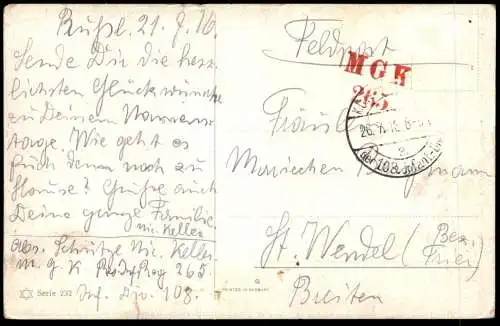 Rußl. 21.7.16.
Sende Dir die herz-
lichsten Glückwünsche
zu Deinem Namens-
tage. Wie geht es
Euch denn noch zu
Hause? Grüße auch
Deine ganze Familie
Nic. Keller
Abs. Schütze Nic. Keller
M.G.K Res. Inf. Reg 265.
Inf. Div. 108.
Serie 232
Feldpost
MGK
265
Fräulein
der 108. Infanterie
St. Wendel (Bez.
Trier)